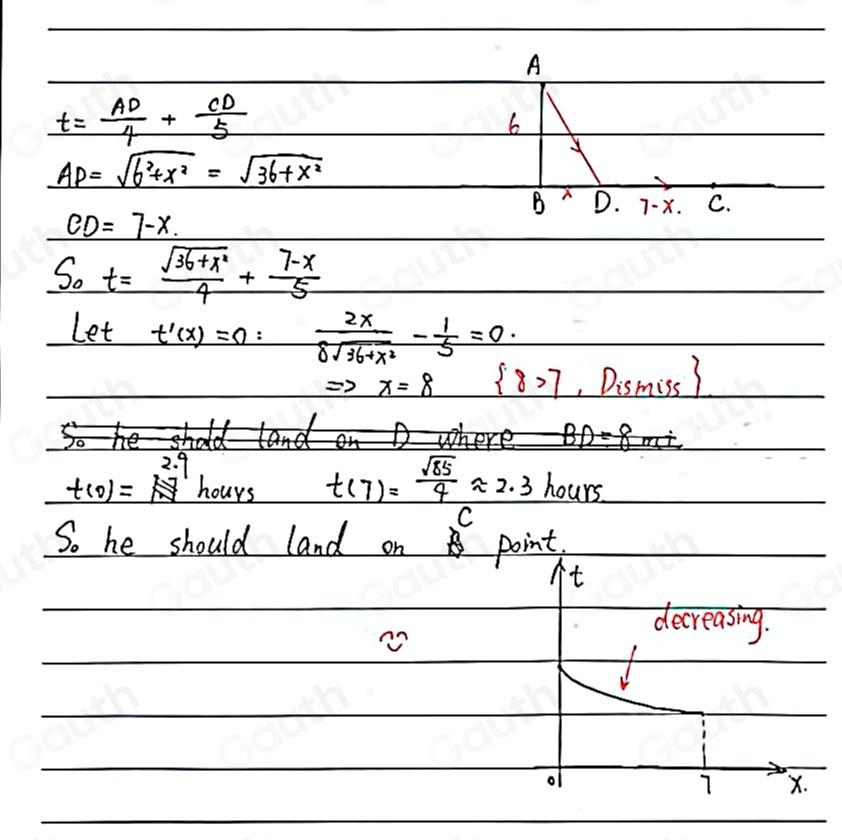 A
t = AD/4 + CD/5
6
AD = √(6²+x²) = √(36+x²)
B x D. 7-x. C.
CD = 7-x.
So t = √(36+x²)/4 + (7-x)/5
Let t'(x) = 0 : 2x/(8√(36+x²)) - 1/5 = 0.
=> x = 8 {8>7, Dismiss}
So he shold land on D where BD=8 mi.
t(0) = 2.9 hours t(7) = √85/4 ≈ 2.3 hours
So he should land on C point.
t
decreasing.
0 7 x.
Gauth